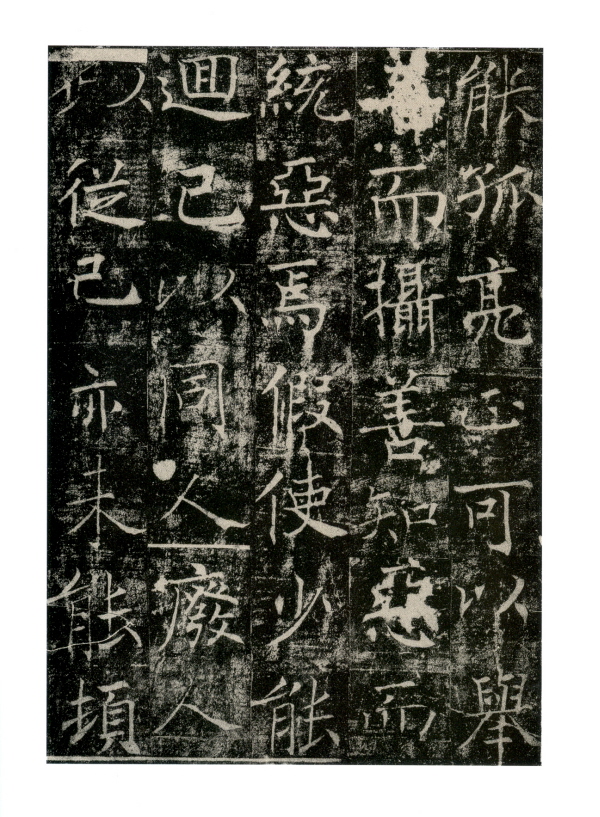 能孤亮正可以舉
而攝善知惡而
統惡焉假使少能
迴己以同人廢人
以從己亦未能頓